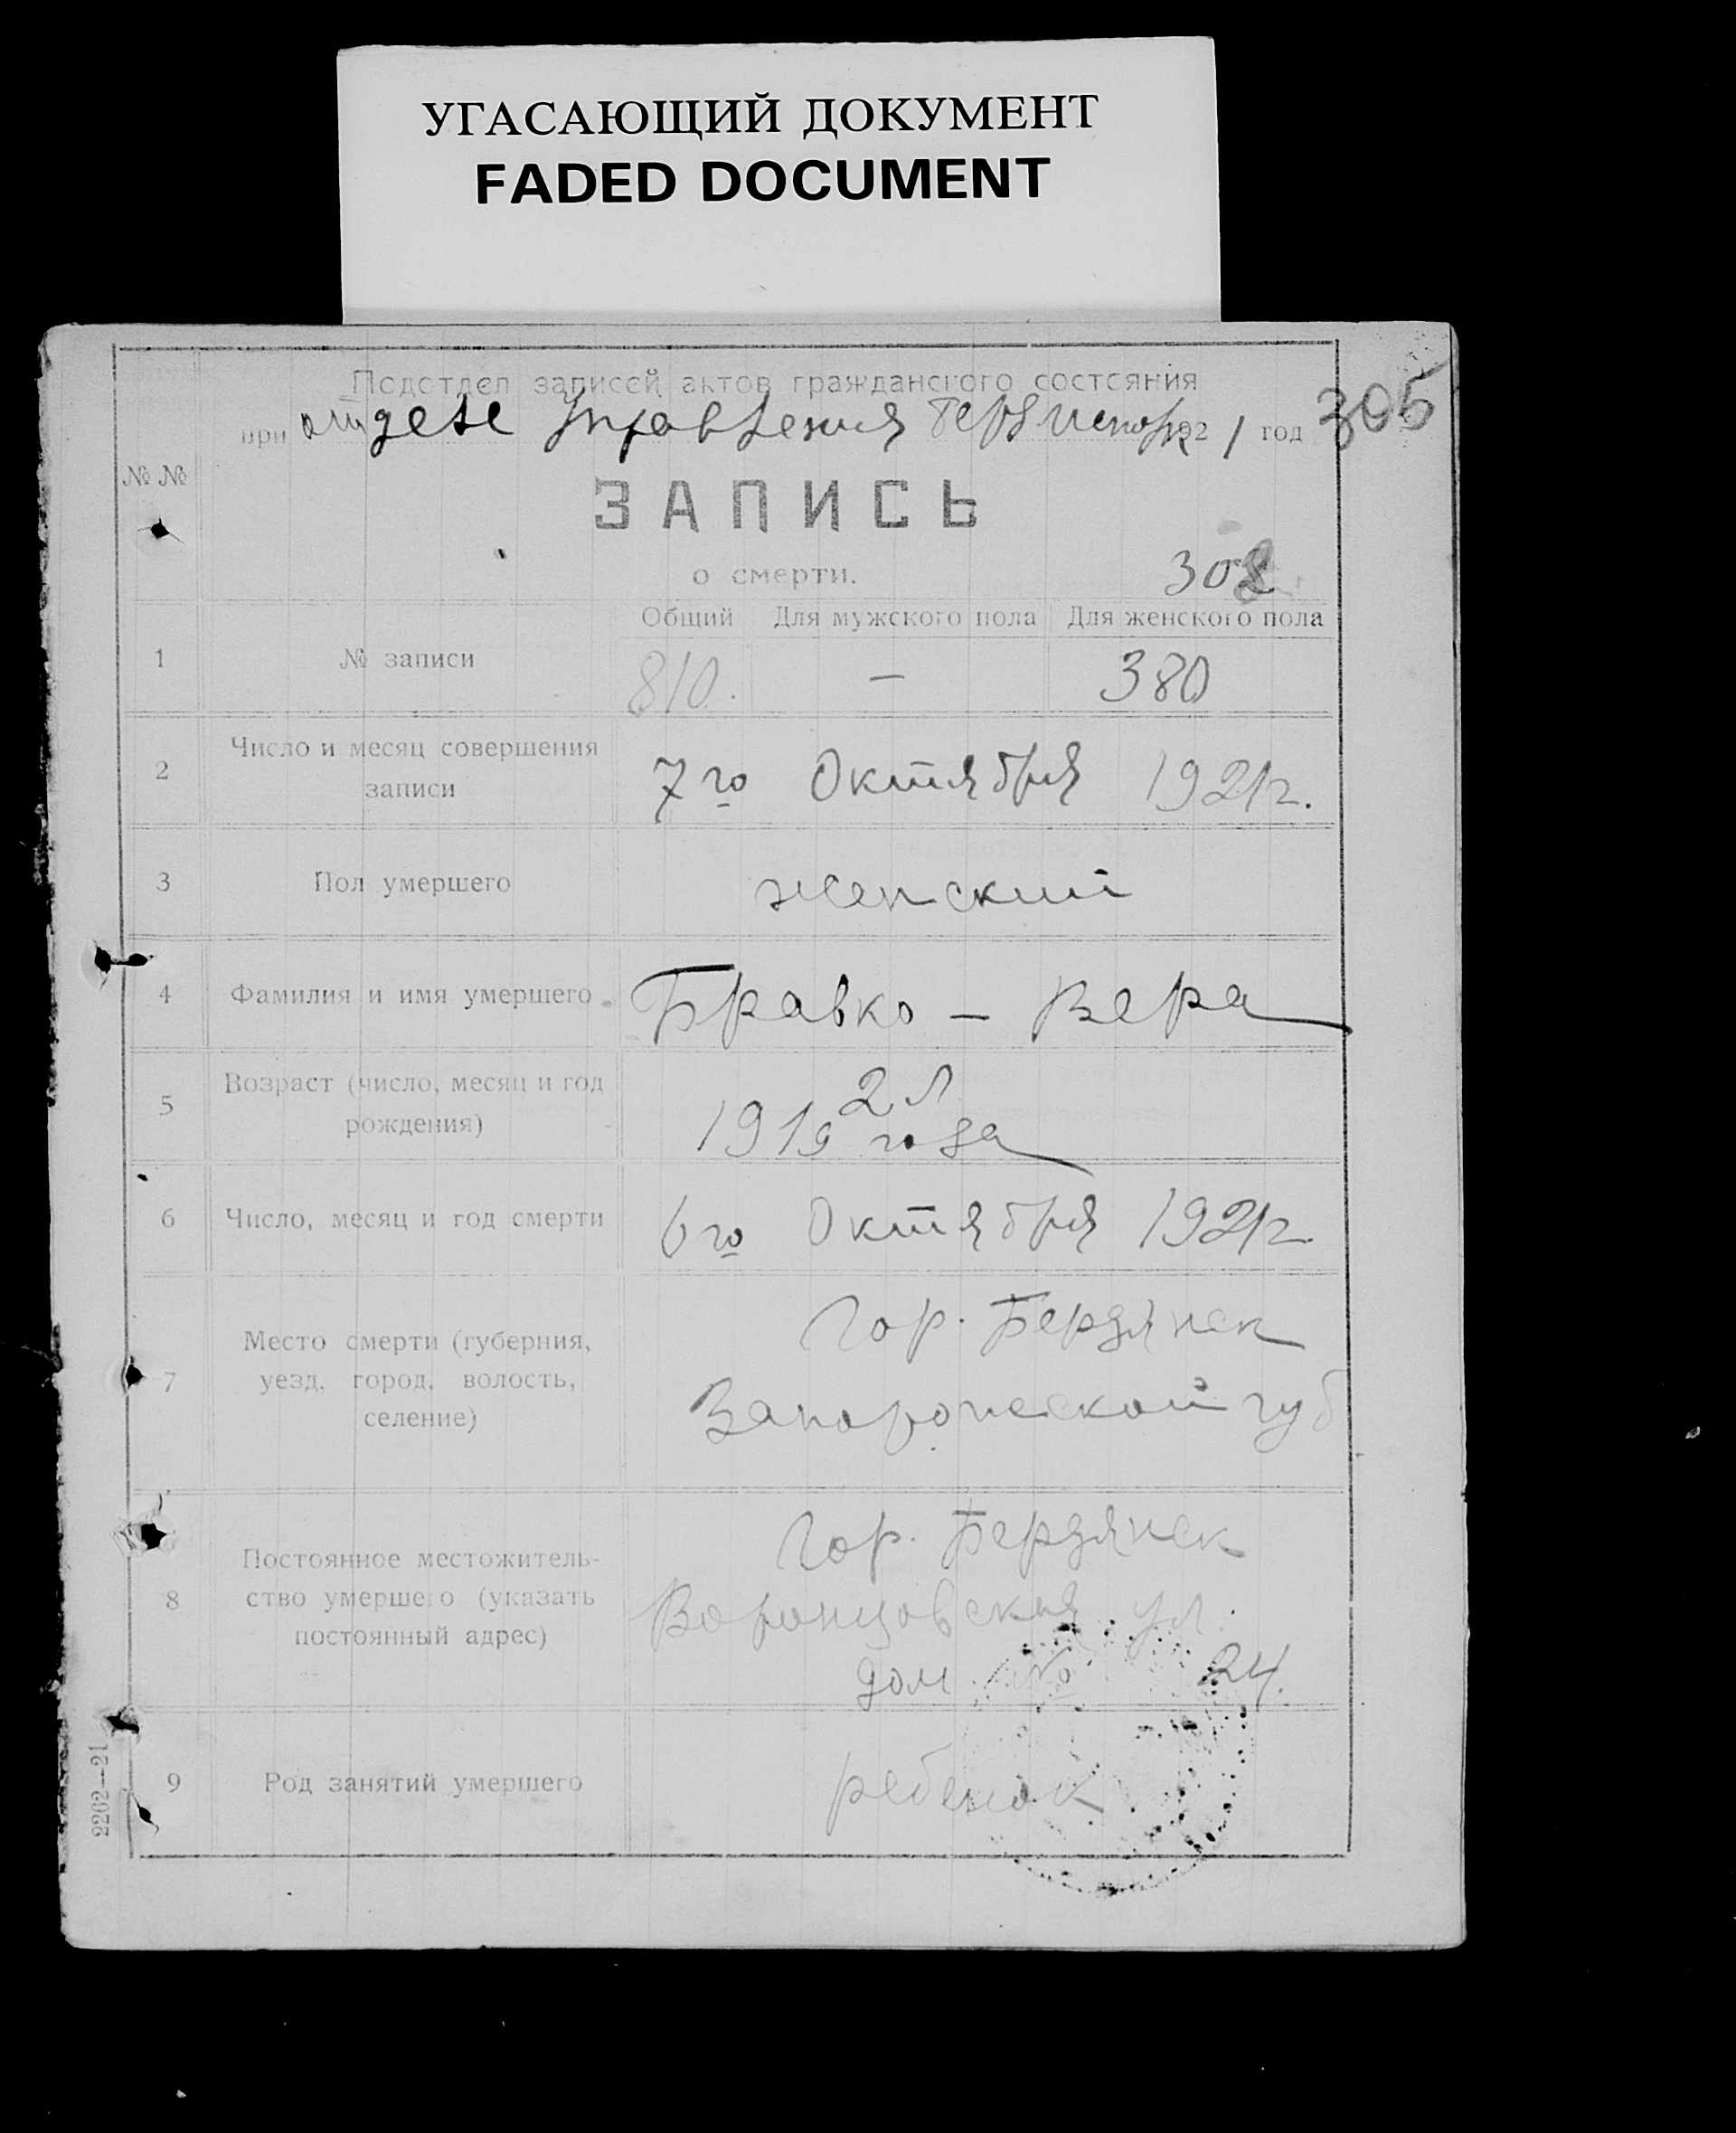 УГАСАЮЩИЙ ДОКУМЕНТ
FADED DOCUMENT
Подотдел записей актов гражданского состояния
при отделе Управления Бердисполк 1921 год
305
№ №
ЗАПИСЬ
о смерти.
308
Общий Для мужского пола Для женского пола
1 № записи 810. — 380
2 Число и месяц совершения
записи
7го Октября 1921г.
3 Пол умершего женский
4 Фамилия и имя умершего Бравко — Вера
5 Возраст (число, месяц и год
рождения)
2 л
1919 года
6 Число, месяц и год смерти 6го Октября 1921г.
7 Место смерти (губерния,
уезд, город, волость,
селение)
Гор. Бердянск
Запорожской губ
8 Постоянное местожитель-
ство умершего (указать
постоянный адрес)
Гор. Бердянск
Воронцовская ул.
дом № 24.
9 Род занятий умершего ребенок
2262—21